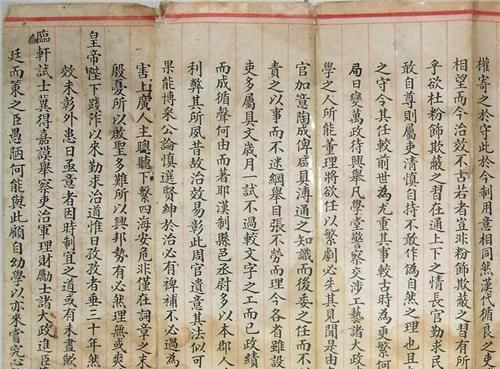 權寄之於守此於今制用意相同然漢代循良之吏
相望而今治效不古若者豈非粉飾欺蔽之習有所
乎欲杜粉飾欺蔽之習在通上下之情長官勤求民
敢自尊則屬吏清慎自持不敢作偽自然之理也且
之守今其任較前世為尤重其事較古時為更繁何
局日變萬政待興舉凡學堂警察交涉工藝諸大政
學之人所能董理將欲任以繁劇必先其見聞是由
官加意陶成俾咸具溥通之知識而後委之任而不
責之以事而不迷綱舉目張不勞而理今各省雖設
吏多屬具文歲月一試不過較文字之工而已政績
而成循聲何由而著耶漢制縣邑丞尉多以本郡人
利弊其所夙昔故治效易彰此周官遺意其法可
果能博采公論慎選賢紳於治必有裨補不必過為
害上廣人主聰聽下繫四海安危非僅在詞章之末
殷憂所以啟聖多難所以興邦勢有必然理無或爽
皇帝陛下踐阼以來勤求治道惟日孜孜者垂三十年然
效未彰外患日亟意者因時制宜之道或有未盡歟
臨軒試士冀得嘉謨舉察吏治軍理財勵士諸大政進臣
廷而策之臣愚陋何能與此顧自幼學以亦來嘗究心